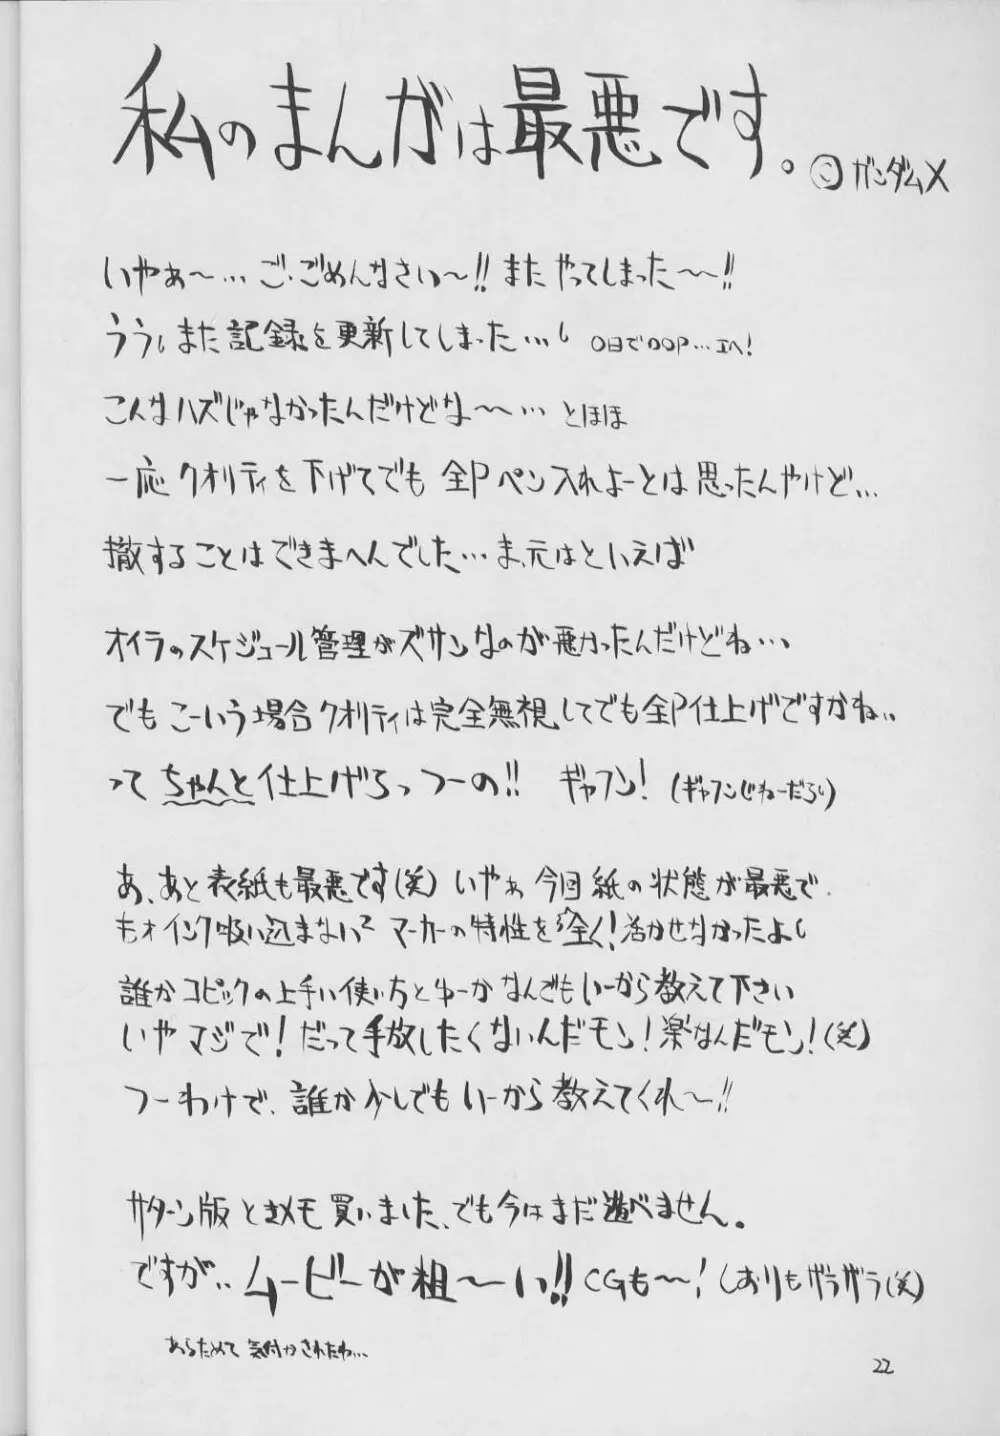 私のまんがは最悪です。 ©ガンダムX
いやぁ〜…ご・ごめんなさい〜!! またやってしまった〜〜!!
うぅ、また記録を更新してしまった…。 〇日で〇〇P…エヘ!
こんなハズじゃなかったんだけどな〜〜… とほほ
一応クオリティを下げてでも 全Pペン入れよーとは思ったんやけど…
撤することはできまへんでした…ま、元はといえば
オイラのスケジュール管理がズサンなのが悪かったんだけどね…、
でもこーいう場合クオリティは完全無視してでも全P仕上げですかね、、
って ちゃんと仕上げろっつーの!! ギャフン! (ギャフンじねーだろい)
あ、あと表紙も最悪です(笑) いやぁ今回紙の状態が最悪で、
もォインク吸い込まないって マーカーの特性を全く!活かせなかったよ。
誰かコピックの上手い使い方とゆーかなんでもいーから教えて下さい
いやマジで!だって手放したくないんだモン!楽なんだモン!(笑)
つーわけで、誰か少しでもいーから教えてくれ〜!!
サターン版ときメモ買いました、でも今はまだ遊べません。
ですが、、ムービーが粗〜い!! CGも〜〜! しおりもザラザラ(笑)
あらためて気付かされたわ…
22